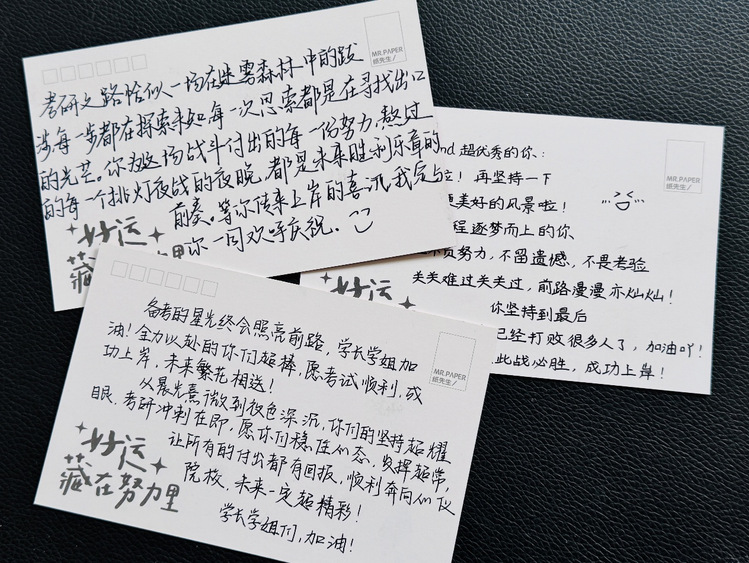 MR.PAPER
纸先生/
考研之路恰似一场在迷雾森林中的跋
涉每一步都在探索未知每一次思索都是在寻找出口
的光芒。你为这场战斗付出的每一份努力,熬过
的每一个挑灯夜战的夜晚,都是未来胜利乐章的
前奏。等你传来上岸的喜讯,我会与
你一同欢呼庆祝.
好运
藏在努力里
MR.PAPER
纸先生/
nd 超优秀的你:
!再坚持一下
更美好的风景啦!
程逐梦而上的你
负努力,不留遗憾,不畏考验
关关难过关关过,前路漫漫亦灿灿!
你坚持到最后
已经打败很多人了,加油吖!
此战必胜,成功上岸!
好运
MR.PAPER
纸先生/
备考的星光终会照亮前路,学长学姐加
油!全力以赴的你们超棒,愿考试顺利,成
功上岸,未来繁花相送!
从晨光熹微到夜色深沉,你们的坚持超耀
眼,考研冲刺在即,愿你们稳住心态,发挥超常,
让所有的付出都有回报,顺利奔向心仪
院校,未来一定超精彩!
学长学姐们,加油!
好运
藏在努力里